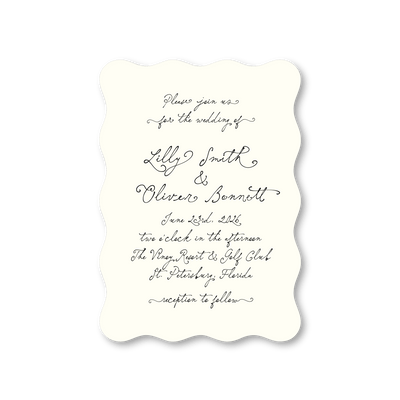 Please join us
for the wedding of
Lilly Smith
&
Oliver Bennett
June 23rd, 2026
two o'clock in the afternoon
The Vinoy Resort & Golf Club
St. Petersburg, Florida
reception to follow